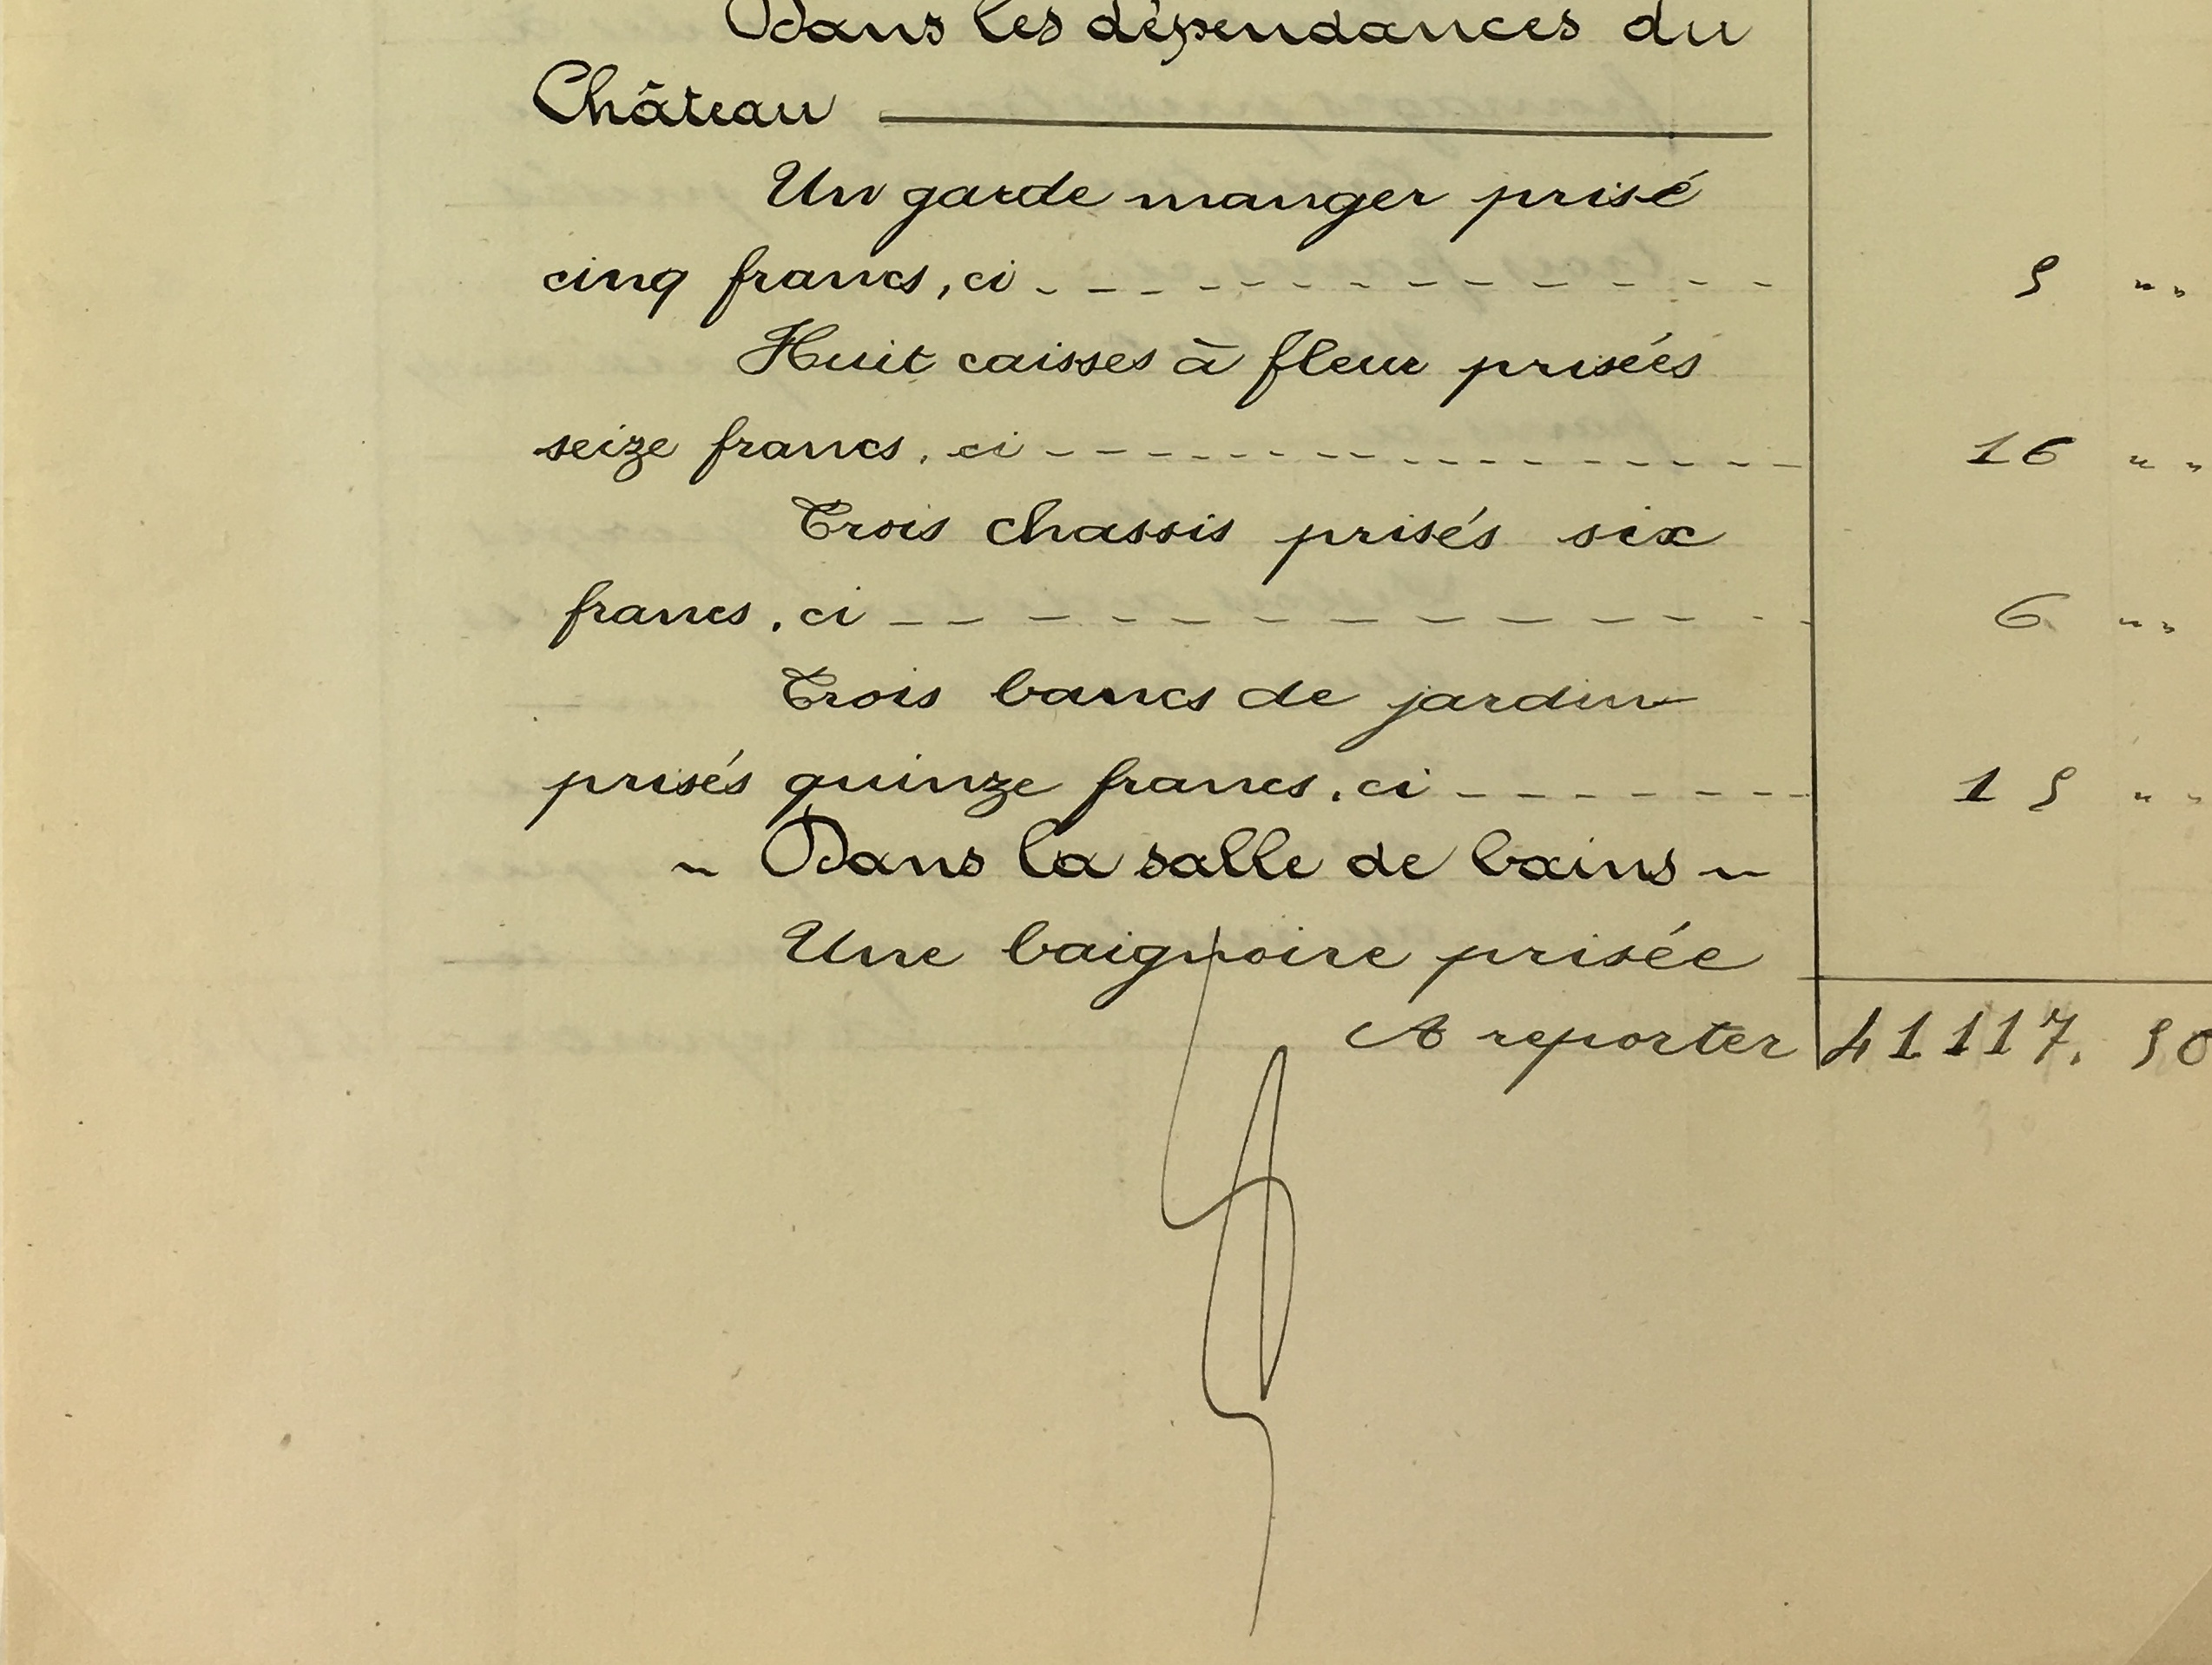 Dans les dépendances du
Château
Un garde manger prisé
cinq francs, ci - - - - - - - - - - - - - 5 " "
Huit caisses à fleur prisées
seize francs, ci - - - - - - - - - - - - - 16 " "
Trois chassis prisés six
francs, ci - - - - - - - - - - - - - 6 " "
Trois bancs de jardin
prisés quinze francs, ci - - - - - - - 15 " "
~ Dans la salle de bains ~
Une baignoire prisée
A reporter 41117. 50